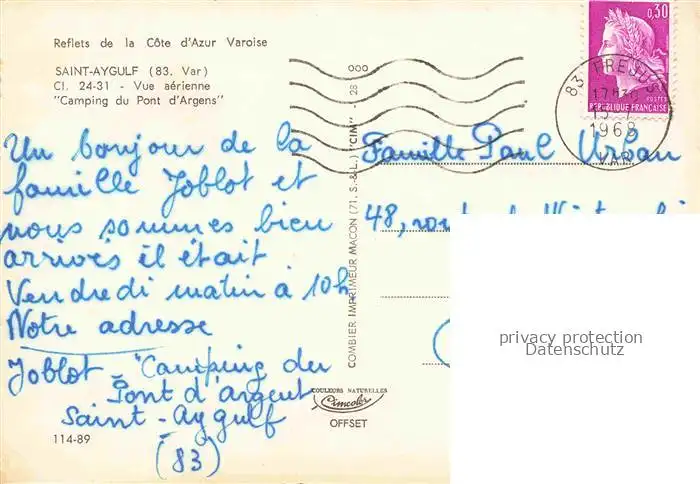 Reflets de la Côte d'Azur Varoise
SAINT-AYGULF (83. Var)
Cl. 24-31 - Vue aérienne
"Camping du Pont d'Argens"
Un bonjour de la
famille Joblot et
nous sommes bien
arrivés il était
Vendredi matin à 10h.
Notre adresse
Joblot - "Camping du
Pont d'argent,
Saint-Aygulf
(83)
114-89
COMBIER IMPRIMEUR MACON (71. S.-&-L.) "CIM" - 28 000
COULEURS NATURELLES
Cimcolor
OFFSET
0,30
POSTES
REPUBLIQUE FRANÇAISE
83 FREJUS
17H30
15
1968
VAR
Famille Paul Urban
48,
privacy protection
Datenschutz